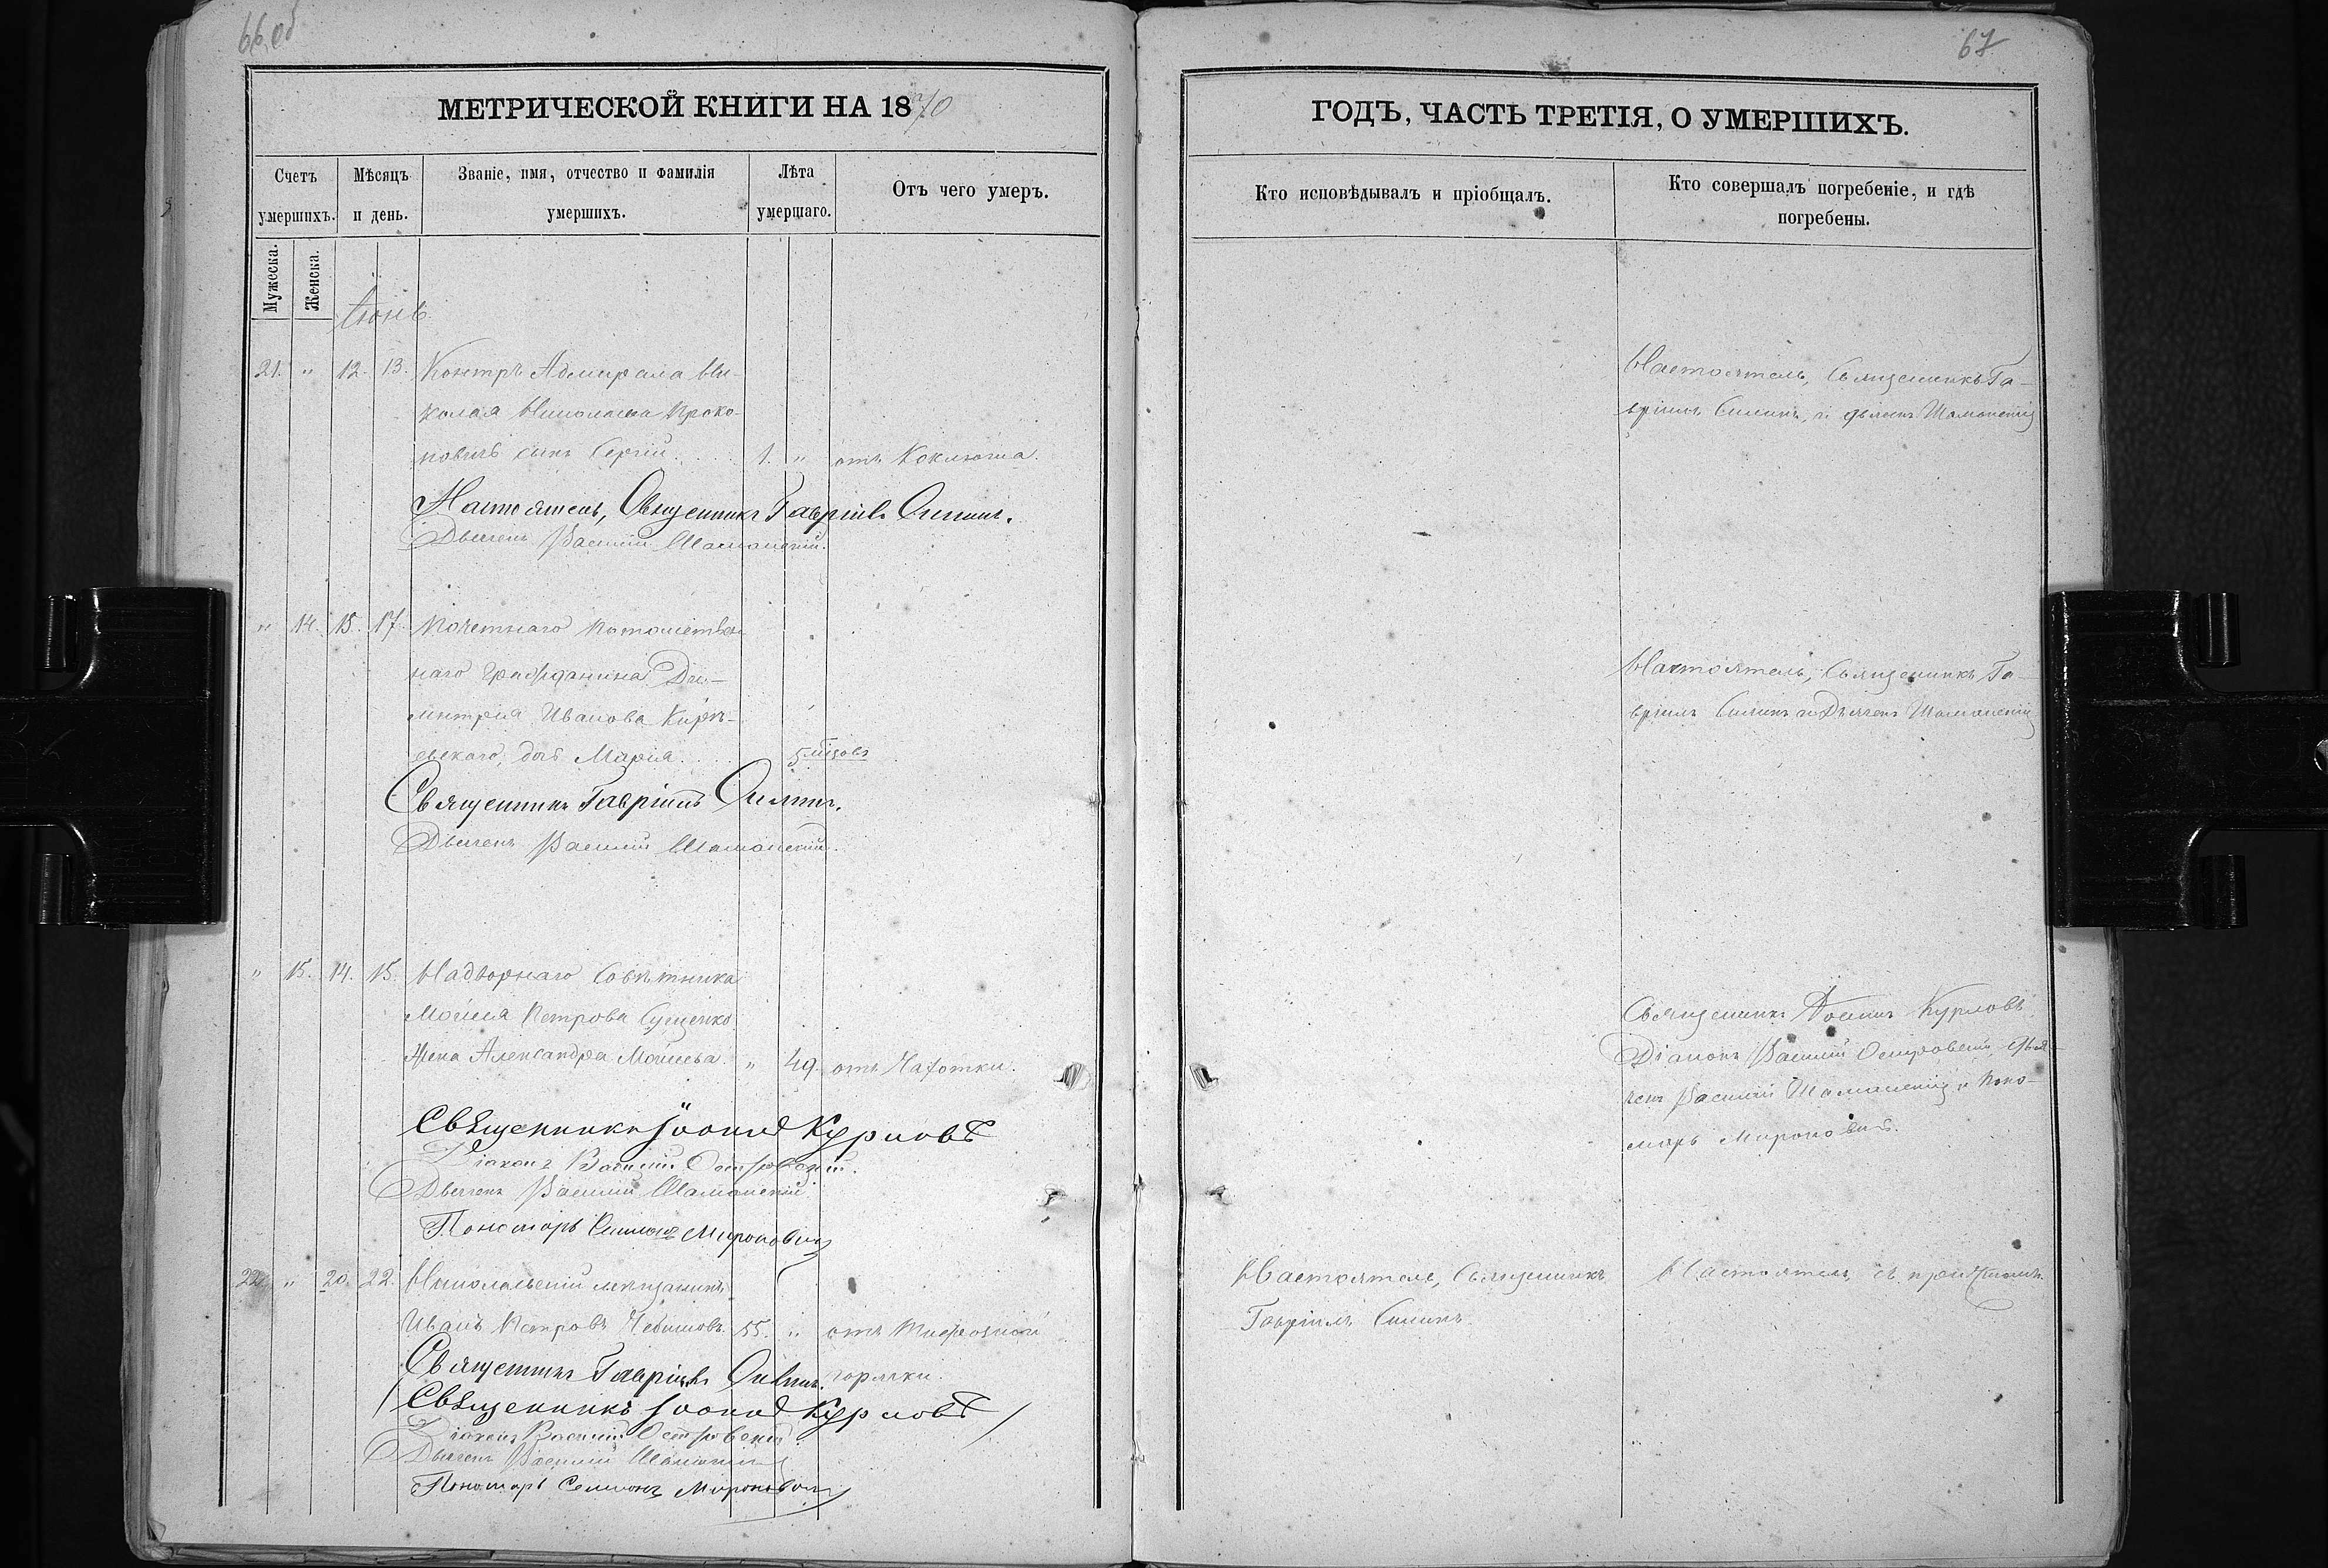 66 об
МЕТРИЧЕСКОЙ КНИГИ НА 1870
Счетъ умершихъ.
Мѣсяцъ и день.
Званіе, имя, отчество и фамилія умершихъ.
Лѣта умершаго.
Отъ чего умеръ.
Мужеска.
Женска.
Іюнь.
21. " 12. 13. Контръ Адмирала Ни-
колая Николаева Проко-
повичъ сынъ Сергій. 1. " отъ Коклюша.
Настоятель, Священникъ Гавріилъ Силинъ.
Дьячекъ Василій Шаманскій.
" 14. 15. 17. Почетнаго Потомствен
наго Гражданина Ди-
митрія Иванова Кирѣ-
евскаго, дочь Марія. 5 мѣсяцовъ
Священникъ Гавріилъ Силинъ.
Дьячекъ Василій Шаманскій.
" 15. 14. 15. Надворнаго Совѣтника
Моисея Петрова Сущенко
Жена Александра Моисеева. " 49. отъ Чахотки.
Священникъ Іоаннъ Курловъ
Діаконъ Василій Островскій.
Дьячекъ Василій Шаманскій.
Пономарь Симеонъ Мироновичъ
22. " 20. 22. Николаевскій мѣщанинъ
Иванъ Петровъ 55. " отъ Тифозной
горячки.
Священникъ Гавріилъ Силинъ.
Священникъ Іоаннъ Курловъ
Діаконъ Василій Островскій.
Дьячекъ Василій Шаманскій
Пономарь Симеонъ Мироновичъ
67
ГОДЪ, ЧАСТЬ ТРЕТІЯ, О УМЕРШИХЪ.
Кто исповѣдывалъ и пріобщалъ.
Кто совершалъ погребеніе, и гдѣ
погребены.
Настоятель, Священникъ Га-
вріилъ Силинъ, и дьячекъ Шаманскій
Настоятель, Священникъ Га-
вріилъ Силинъ и Дьячекъ Шаманскій
Священникъ Іоаннъ Курловъ
Діаконъ Василій Островскій, дья-
чекъ Василій Шаманскій и Поно-
марь Мироновичъ.
Настоятель, Священникъ
Гавріилъ Силинъ.
Настоятель съ причтомъ.